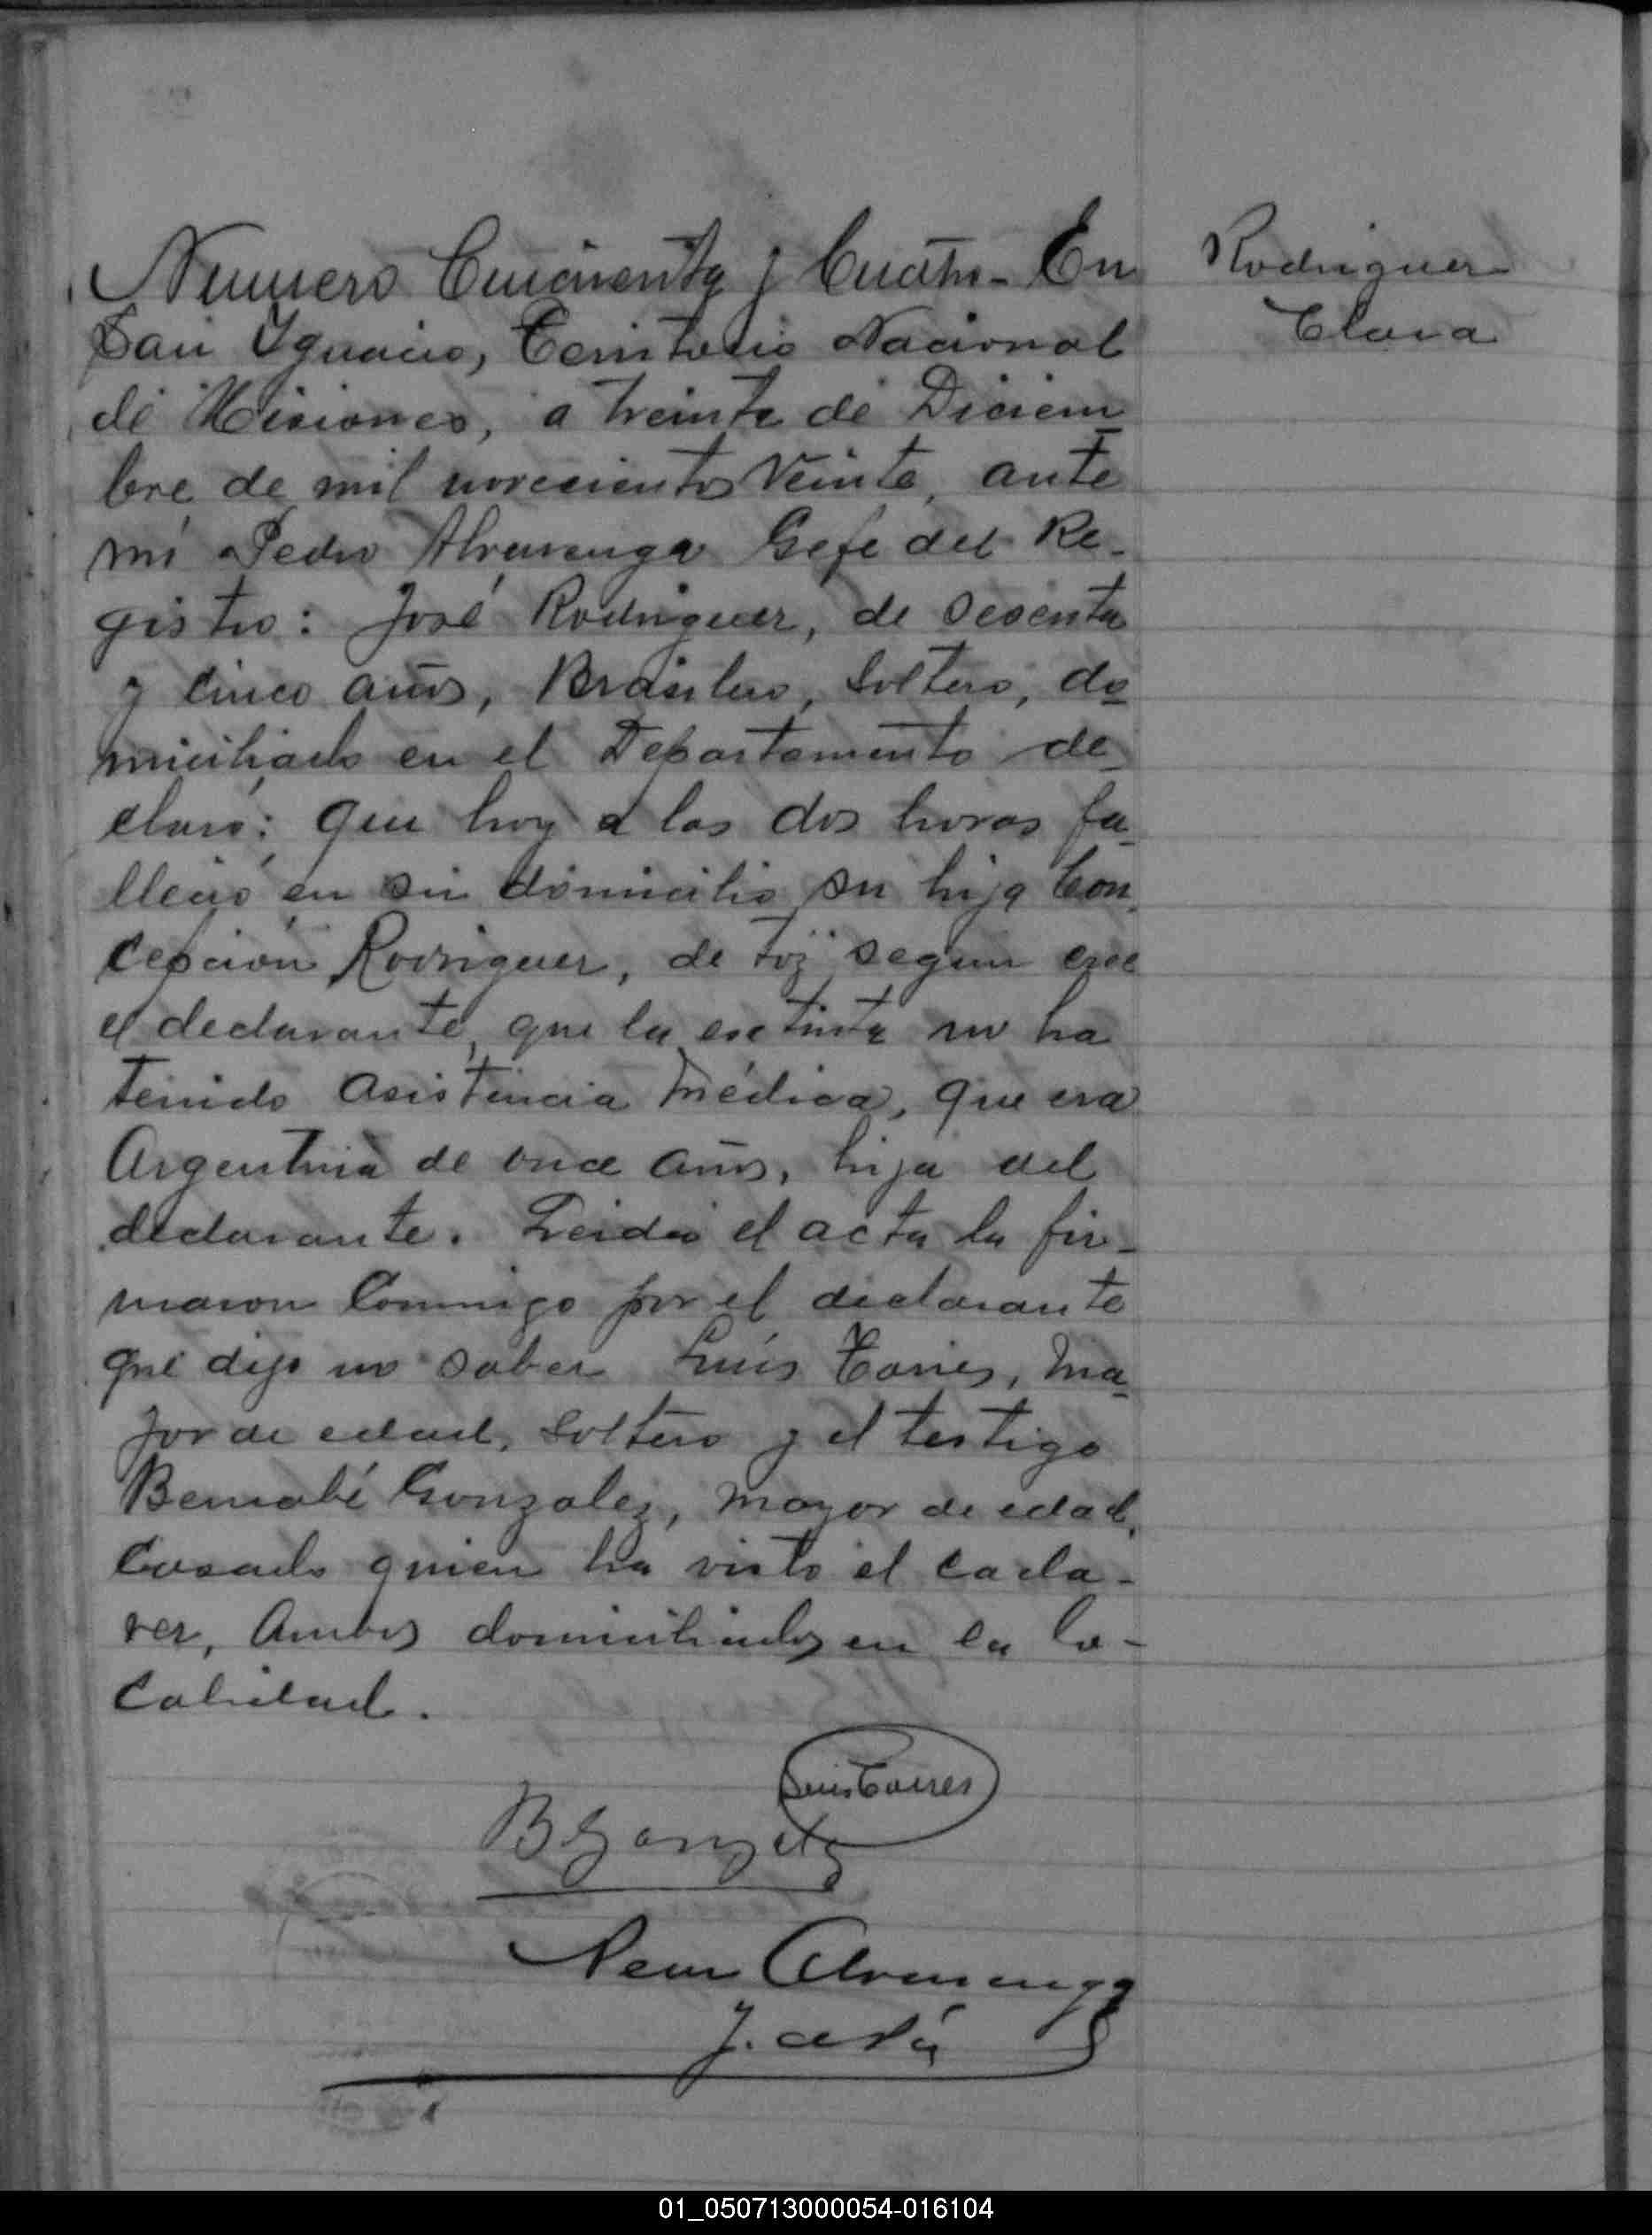 Numero Cincuenta y Cuatro - En
San Ignacio, Territorio Nacional
de Misiones, a treinta de Diciem
bre de mil novecientos Veinte, ante
mi Pedro Alvarenga Gefe del Re-
gistro: José Rodriguez, de Sesenta
y Cinco años, Brasilero, Soltero, do
miciliado en el Departamento de
claró: que hoy a las dos horas fa
lleció en su domicilio su hija Con
cepción Rodriguez, de toz segun cree
el declarante, que la extinta no ha
tenido asistencia médica, que era
Argentina de once años, hija del
declarante. Leida el acta la fir-
maron Conmigo por el declarante
que dijo no saber Luis Torres, Ma
yor de edad, Soltero y el testigo
Bernabé Gonzalez, mayor de edad,
Casado quien ha visto el cada-
ver, Ambos domiciliados en la lo-
calidad.
Rodriguez
Clara
Luis Torres
B Gonzalez
Pedro Alvarenga
01_050713000054-016104